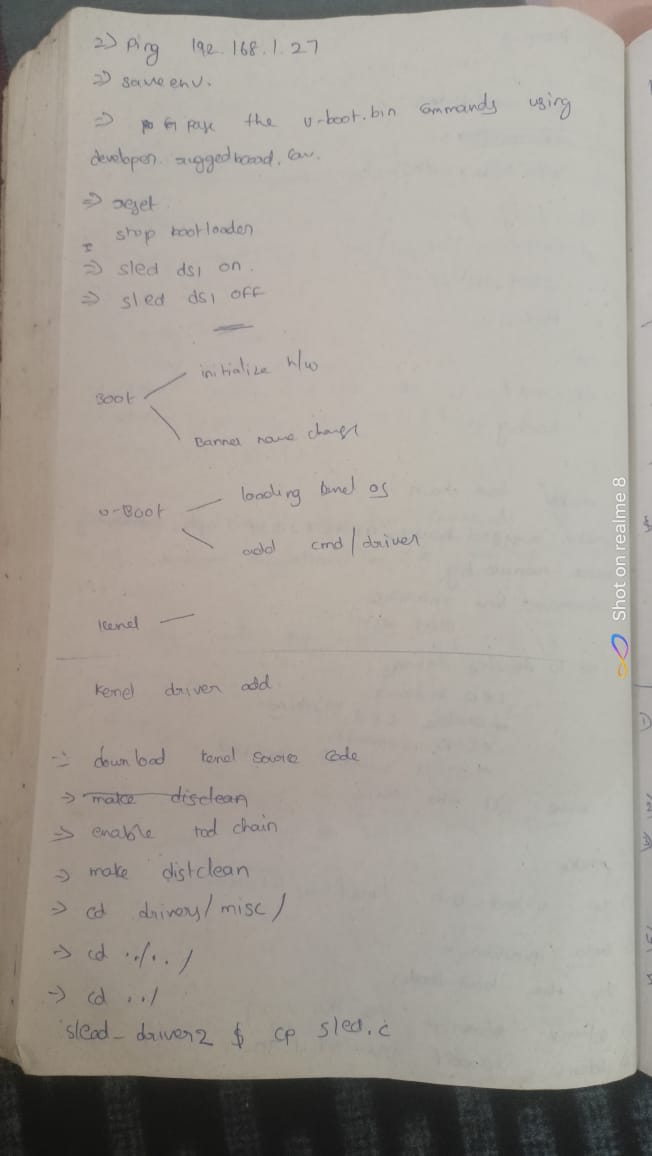 2) Ping 192.168.1.27
=> saveenv.
=> the u-boot.bin commands using
developer. ruggedboard.
=> reset
stop bootloader
=> sled ds1 on.
=> sled ds1 off
Boot
initialize h/w
Banner name change
u-Boot
loading kernel os
add cmd/driver
Kernel —
Kernel driver add
=> download kernel source code
=> make disclean
=> enable tool chain
=> make distclean
=> cd drivers/misc/
=> cd ../../
=> cd ../
slead_driver2 $ cp sled.c
Shot on realme 8